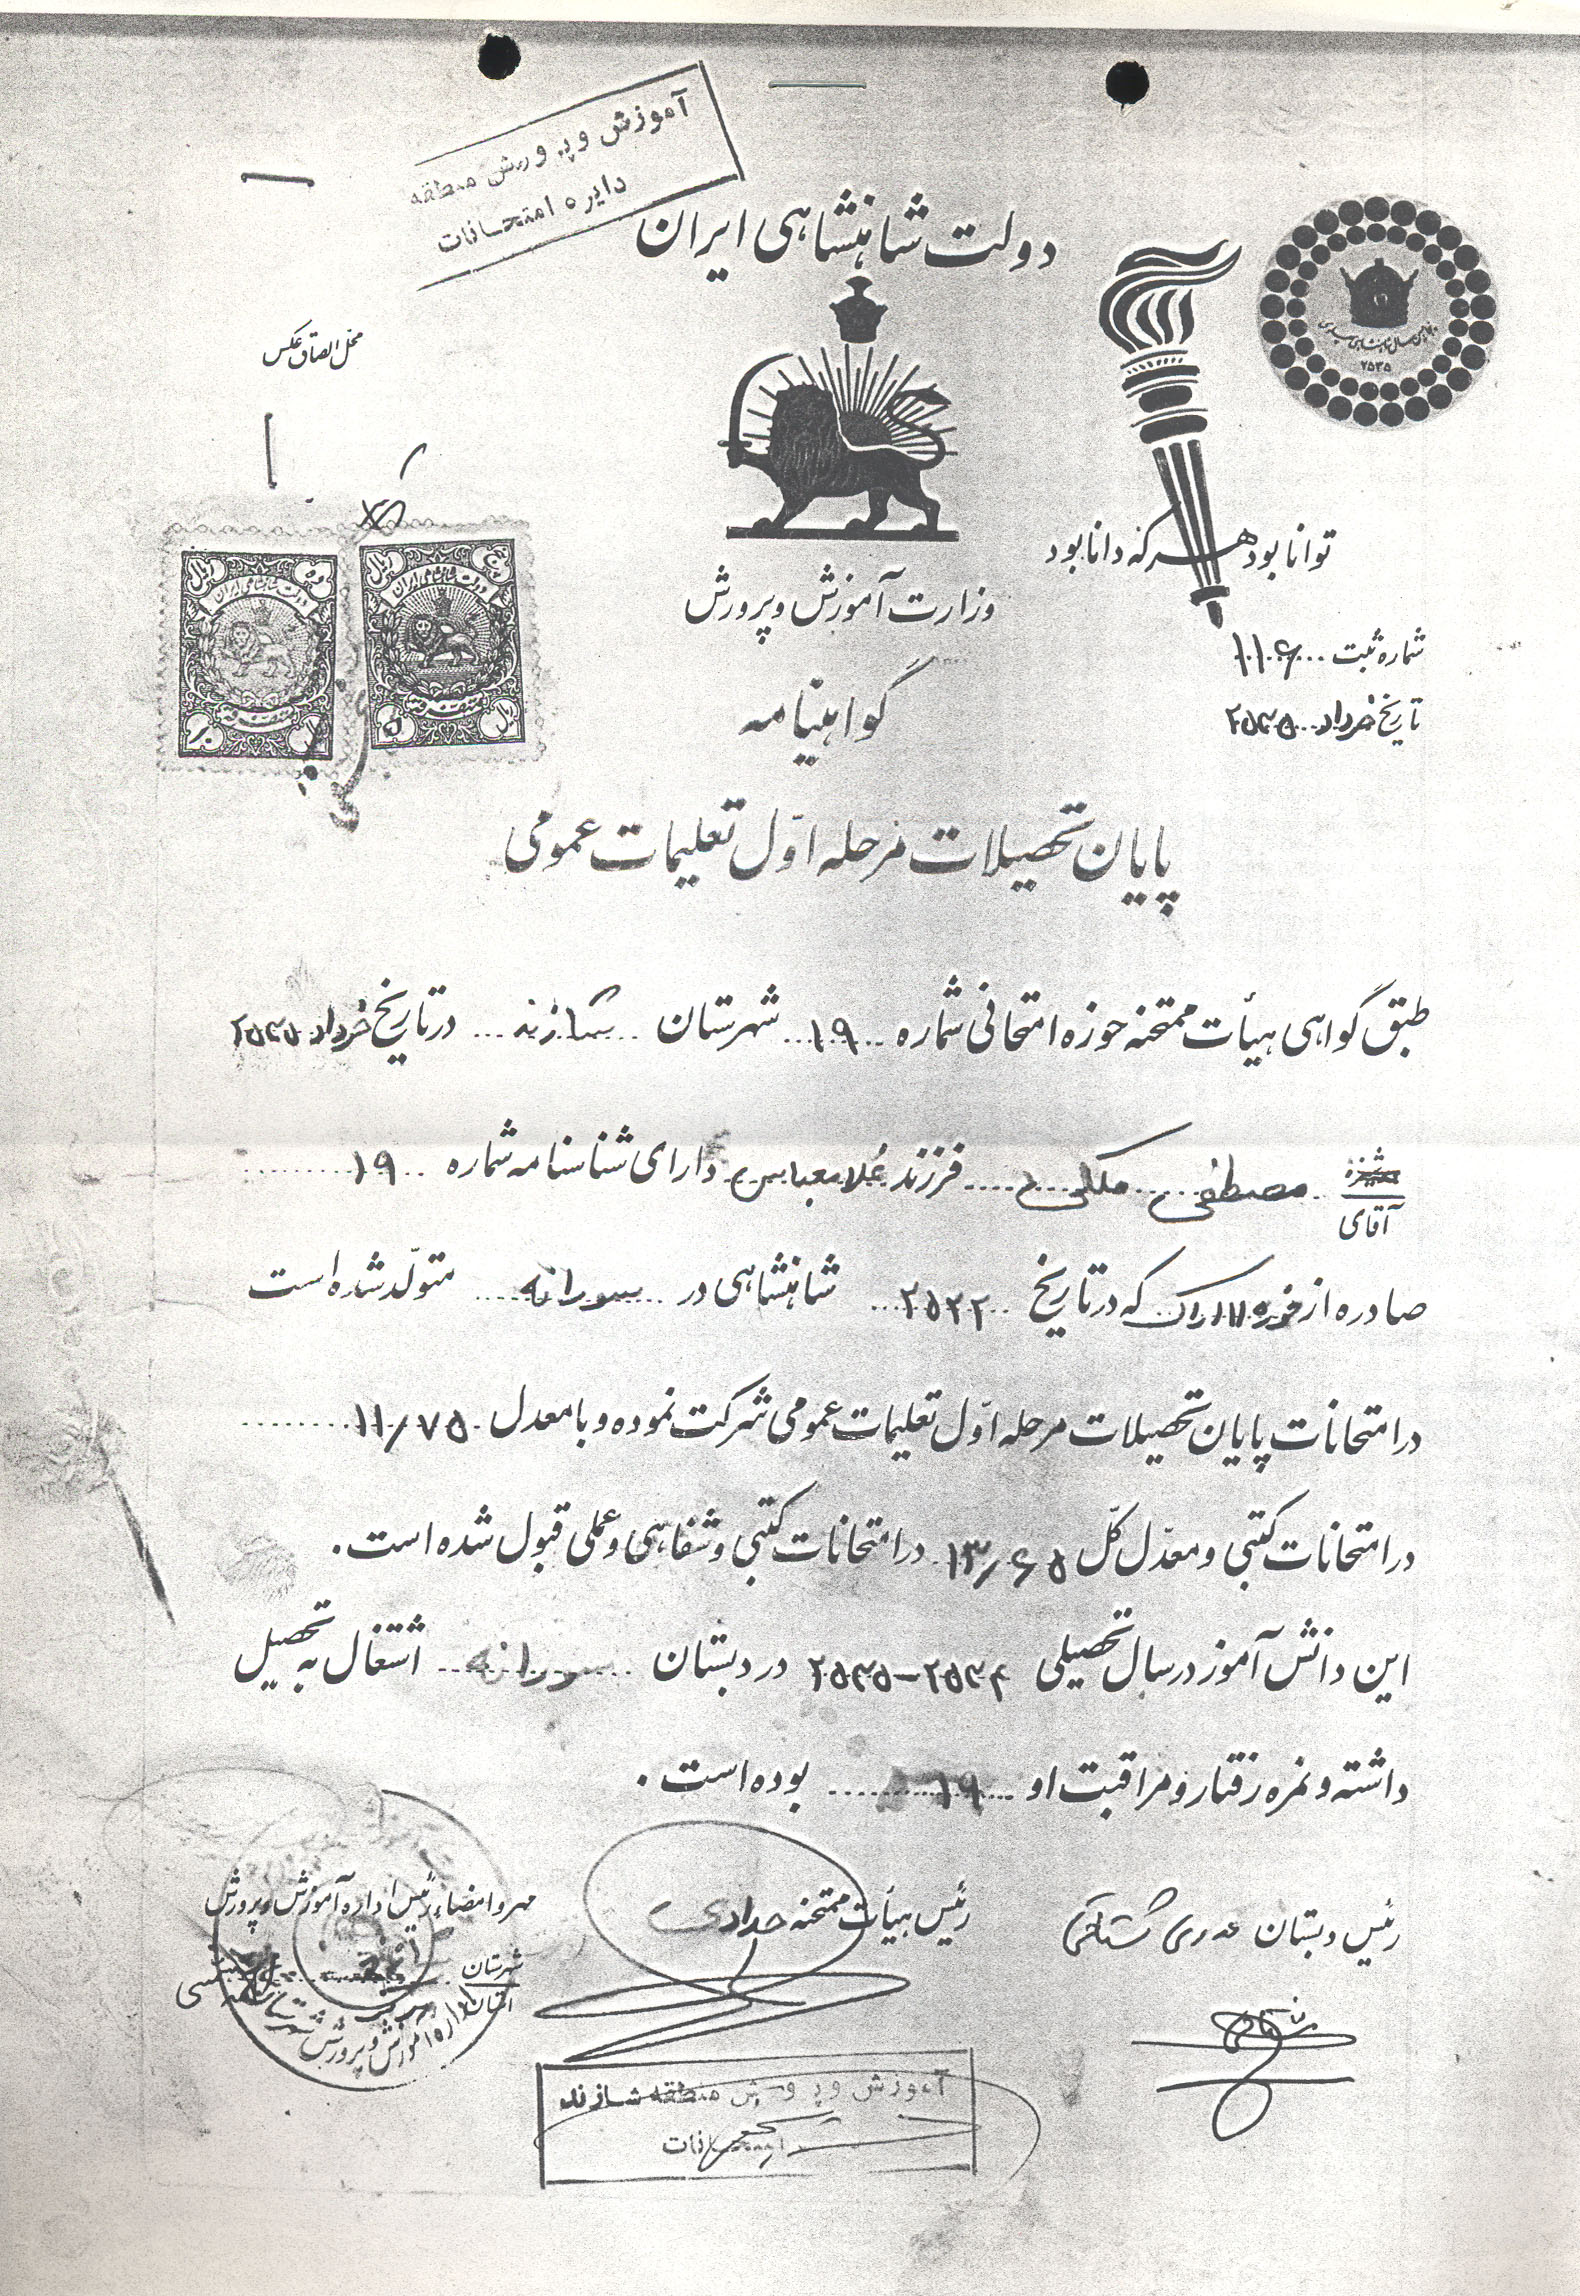 آموزش و پرورش منطقه
دایره امتحانات
دولت شاهنشاهی ایران
۲۵۳۵
محل الصاق عکس
توانا بود هر که دانا بود
وزارت آموزش و پرورش
دولت شاهنشاهی ایران
دولت شاهنشاهی ایران
شماره ثبت ۱۱۰۶
تاریخ خرداد ۲۵۳۵
گواهینامه
پایان تحصیلات مرحله اوّل تعلیمات عمومی
طبق گواهی هیأت ممتحنه حوزه امتحانی شماره ۱۹ شهرستان شازند در تاریخ خرداد ۲۵۳۵
دوشیزه
آقای مصطفی ملکی فرزند غلامعباس دارای شناسنامه شماره ۱۹
صادره از حوزه ۱۱ اراک که در تاریخ ۲۵۲۲ شاهنشاهی در سورانه متولّد شده است
در امتحانات پایان تحصیلات مرحله اوّل تعلیمات عمومی شرکت نموده و با معدل ۱۱/۷۵
در امتحانات کتبی و معدّل کلّ ۱۳/۶۵ در امتحانات کتبی و شفاهی و عملی قبول شده است.
این دانش آموز در سال تحصیلی ۲۵۳۴-۲۵۳۵ در دبستان سورانه اشتغال به تحصیل
داشته و نمره رفتار و مراقبت او ۱۹ بوده است.
رئیس دبستان
رئیس هیأت ممتحنه حدادی
مهر و امضاء رئیس اداره آموزش و پرورش
شهرستان
استان
اداره آموزش و پرورش شهرستان
آموزش و پرورش منطقه شازند
امتحانات